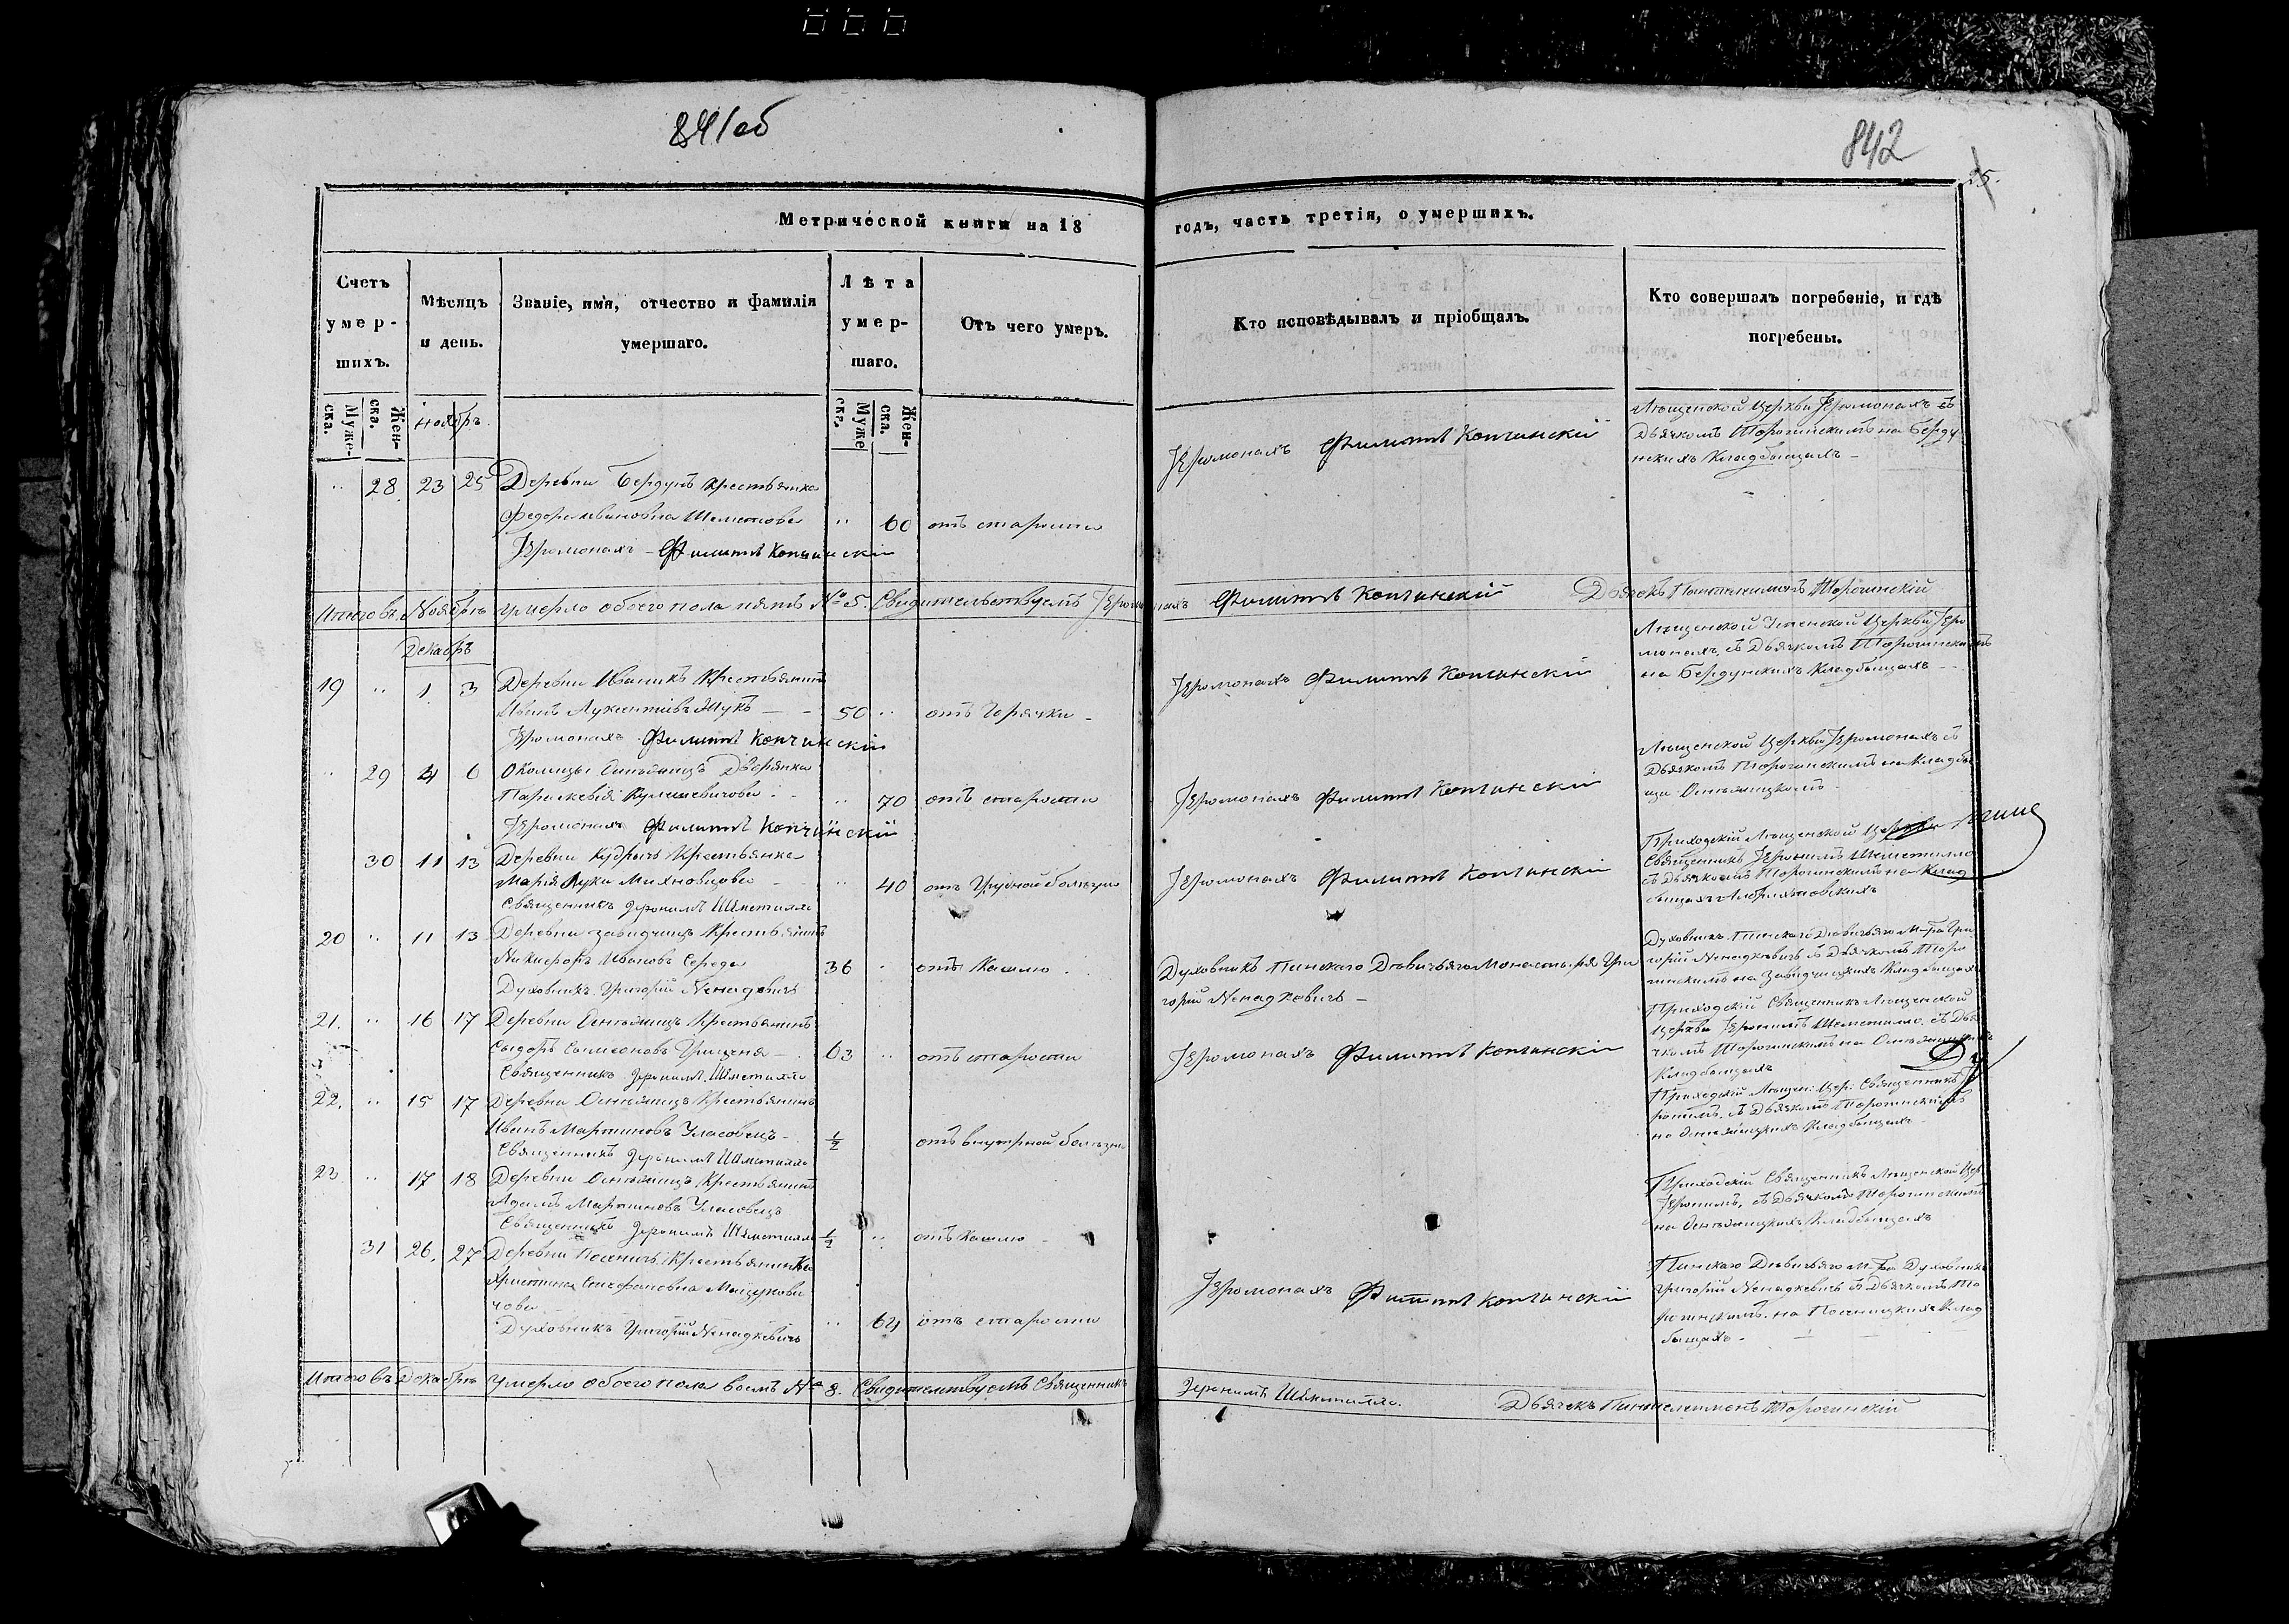 841об
842
25.
Метрической книги на 18 годъ, часть третія, о умершихъ.
Счетъ умер-шихъ.
Муже-ска.
Жен-ска.
Мѣсяцъ и день.
Званіе, имя, отчество и фамилія умершаго.
Лѣта умер-шаго.
Муже ска.
Жен-ска.
Отъ чего умеръ.
Кто исповѣдывалъ и пріобщалъ.
Кто совершалъ погребеніе, и гдѣ погребены.
Ноябрь
28 23 25 Деревни Бердунъ крестьянка
Федора Ивановна 60 отъ старости
Іеромонахъ Филиппъ Копчинскій
Іеромонахъ Филиппъ Копчинскій
Лѣщенской Церкви Іеромонахъ съ
Дьячкомъ Торочинскимъ на Берду
нскихъ Кладбищахъ
Итого въ Ноябрѣ умерло обоего пола пять № 5. Свидительствуемъ Іеромонахъ Филиппъ Копчинскій Дьячекъ Пантелимонъ Торочинскій
Декабрь
19 1 3 Деревни Иваникъ Крестьянинъ
Иванъ Жукъ 50 отъ Горячки
Іеромонахъ Филиппъ Копчинскій
Іеромонахъ Филиппъ Копчинскій
Лѣщенской Церкви Іеро
монахъ, съ Дьячкомъ Торочинскимъ
на Бердунскихъ Кладбищахъ
29 4 6 Околицы Дворянка
Параскевія 70 отъ старости
Іеромонахъ Филиппъ Копчинскій
Іеромонахъ Филиппъ Копчинскій
Лѣщенской Церкви Іеромонахъ съ
Дьячкомъ Торочинскимъ на Кладби
30 11 13 Деревни Кудричъ Крестьянка
Марія Луки 40 отъ Грудной болѣзни
Священникъ Іеронимъ Шеметилло
Іеромонахъ Филиппъ Копчинскій
Приходскій Лѣщенской
Священникъ Іеронимъ Шеметилло
съ Дьячкомъ Торочинскимъ на Клад
20 11 13 Деревни Завидчицъ Крестьянинъ
Никифоръ Ивановъ Середа 36 отъ Кашлю
Духовникъ Григорій Ненадкевичъ
Духовникъ Пинскаго Дѣвичьяго Монастыря Гри
горій Ненадкевичъ
Духовникъ Пинскаго Дѣвичьяго М-ря Гри
горій Ненадкевичъ съ Дьячкомъ Торо
чинскимъ на Завидчицкихъ Кладбищахъ
21. 16 17 Деревни Крестьянинъ
Сидоръ Симеоновъ 63 отъ старости
Священникъ Іеронимъ Шеметилло
Іеромонахъ Филиппъ Копчинскій
Приходскій Священникъ Лѣщенской
Церкви Іеронимъ Шеметилло, съ Дья
чкомъ Торочинскимъ на
Кладбищахъ
22. 15 17 Деревни Крестьянинъ
Иванъ Мартиновъ 1/2 отъ внутрной болѣзни
Священникъ Іеронимъ Шеметилло
Приходскій Лѣщен: Цер: Священникъ Іе
ронимъ, съ Дьячкомъ Торочинскимъ
на Кладбищахъ
23 17 18 Деревни Крестьянинъ
Адамъ Мартиновъ
Священникъ Іеронимъ Шеметилло 1/2 отъ Кашлю
Приходскій Священникъ Лѣщенской Цер
Іеронимъ, съ Дьячкомъ Торочинскимъ
на Кладбищахъ
31 26. 27 Деревни Посеничъ Крестьянка
Христина Стефановна
Духовникъ Григорій Ненадкевичъ 64 отъ старости
Іеромонахъ Филиппъ Копчинскій
Пинскаго Дѣвичьяго М-ря Духовникъ
Григорій Ненадкевичъ съ Дьячкомъ То
рочинскимъ на Посеницкихъ Клад
бищахъ
Итого въ Декабрѣ умерло обоего пола восмъ № 8. Свидительствуемъ Священникъ Іеронимъ Шеметилло. Дьячекъ Пантелеимонъ Торочинскій